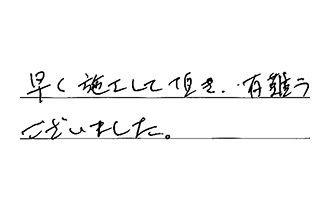 早く施工して頂き、有難う
ございました。